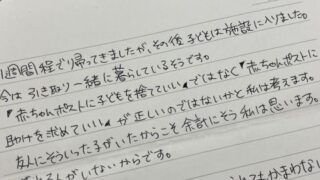 1週間程で帰ってきましたが、その後子どもは施設に入りました。
今は引き取り一緒に暮らしているそうです。
『赤ちゃんポストに子どもを捨てていい』ではなく『赤ちゃんポストに
助けを求めていい』が正しいのではないかと私は考えます。
友人にそういった子がいたからこそ余計にそう私は思います。
がいないからです。
てもかまわない